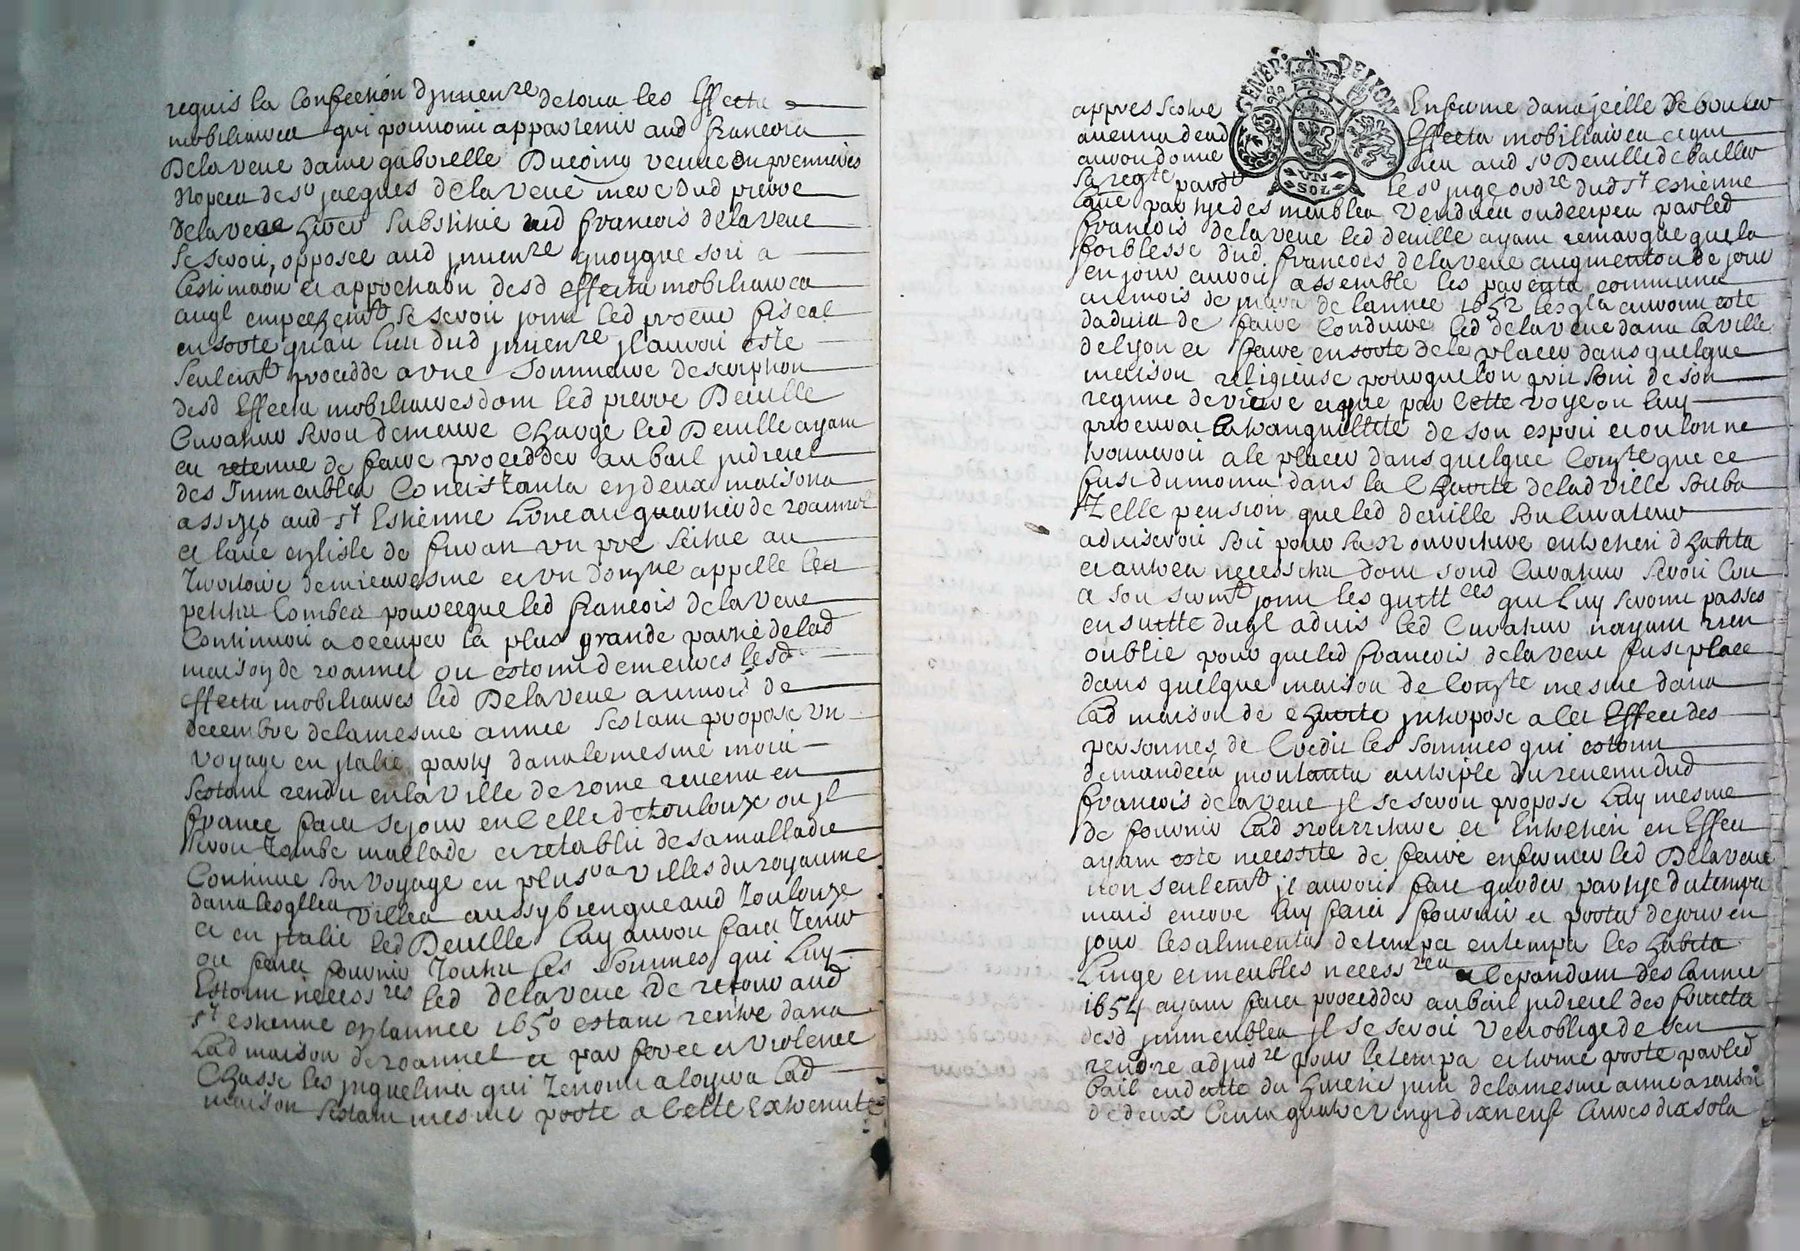 requis la Confection d'jnvenre de tous les Effects
mobiliaires qui pouvoint appartenir aud françois
Delaveue dame gabrielle Ducoing veuve en premieres
Nopces de sr jacques delaveue mere dud pierre
delaveue hiver substitué aud françois delaveue
se seroit opposée aud jnvenre quoyque soit a
lestimaon et approchaon desd effects mobiliaires
auql empeschemt se seroit joint led procur fiscal
en sorte qu'au lieu dud jnvenre jl auroit esté
seulemt proceddé a une sommaire description
desd Effects mobiliaires dont led pierre Deville
Curateur seroit demeuré chargé led Deville ayant
en retenue de faire procedder au bail judiciel
des jmmeubles Consistants en deux maisons
assizes aud st Estienne Lune au quartier de roannel
et lautre en lisle de furan un pré scitué au
Territoire demieavesme et un dongne appellé les
petites Combes pourceque led françois delaveue
Continuoit a occuper la plus grande partie delad
maison de roannel ou estoint demeurés lesd
effects mobiliaires led Delaveue au mois de
decembre delamesme année sestant proposé un
voyage en jtalie party dans le mesme mois
sestant rendu en la ville de rome revenu en
france faict sejour en Celle de toulouze ou jl
seroit Tombé mallade et retabli de sa malladie
Continué son voyage en plusrs villes du royaume
dans lesqlles villes aussy bien que aud Toulouze
et en jtalie led Deville luy auroit faict Tenir
ou faict fournir Toutes les sommes qui luy
Estoint necessres led delaveue de retour aud
st estienne en lannée 1650 estant rentré dans
Lad maison de roannel et par force et violence
Chassé les jnquelins qui Tenoint a loyers lad
maison sestant mesme porté a Cette Extremité
appres sestre Enfermé dans jcelle de bouler
aucuns desd Effects mobiliaires ce qui
auroit donné lieu aud sr Deville de bailler
sa regte pardt le sr juge ordre dud st estienne
lautre partye des meubles vendues ou decipeu par led
françois delaveue led deville ayant remarqué que la
foiblesse dud françois delaveue augmentoit de jour
en jour auroit assemblé les parents communs
au mois de mars de lannée 1652 lesqls auroint esté
dadvis de faire Conduire led delaveue dans la ville
de lyon et faire en sorte de le placer dans quelque
maison religieuse pour que lon prit soin de son
regime de vivre et que par cette voye on luy
procurat la tranquillité de son esprit et ou lon ne
trouveroit a le placer dans quelque Comte que ce
fust du moins dans la Charité delad ville soubs
Telle pension que led deville son Curateur
adviseroit soit pour sa nourriture entretien d'habits
et autres necessites dont sond Curateur seroit Cru
a son sermt joint les quittces qui luy seroint passés
en suitte duql advis led Curateur nayant rien
oublié pour que led françois delaveue fust placé
dans quelque maison de Comte mesme dans
lad maison de Charité jnterposé a cet Effect des
personnes de Credit les sommes qui estoint
demandées montants au triple du revenu dud
françois delaveue jl se seroit proposé luy mesme
de fournir lad nourriture et Entretien en Effect
ayant esté necessité de faire enfermer led Delaveue
non seulemt jl auroit faict garder partye du temps
mais encore luy faict fournir et porter de jour en
jour les aliments de temps en temps les habits
Linge et meubles necessres et cependant des lannée
1654 ayant faict procedder au bail judiciel des fruicts
desd jmmeubles jl se seroit veu obligé de sen
rendre adjudre pour le temps et terme porté par led
bail en datte du huictie juin delamesme année a raison
de deux Cents quatrevingt dix neuf livres dix sols
GENER: DE LYON
VN
SOL